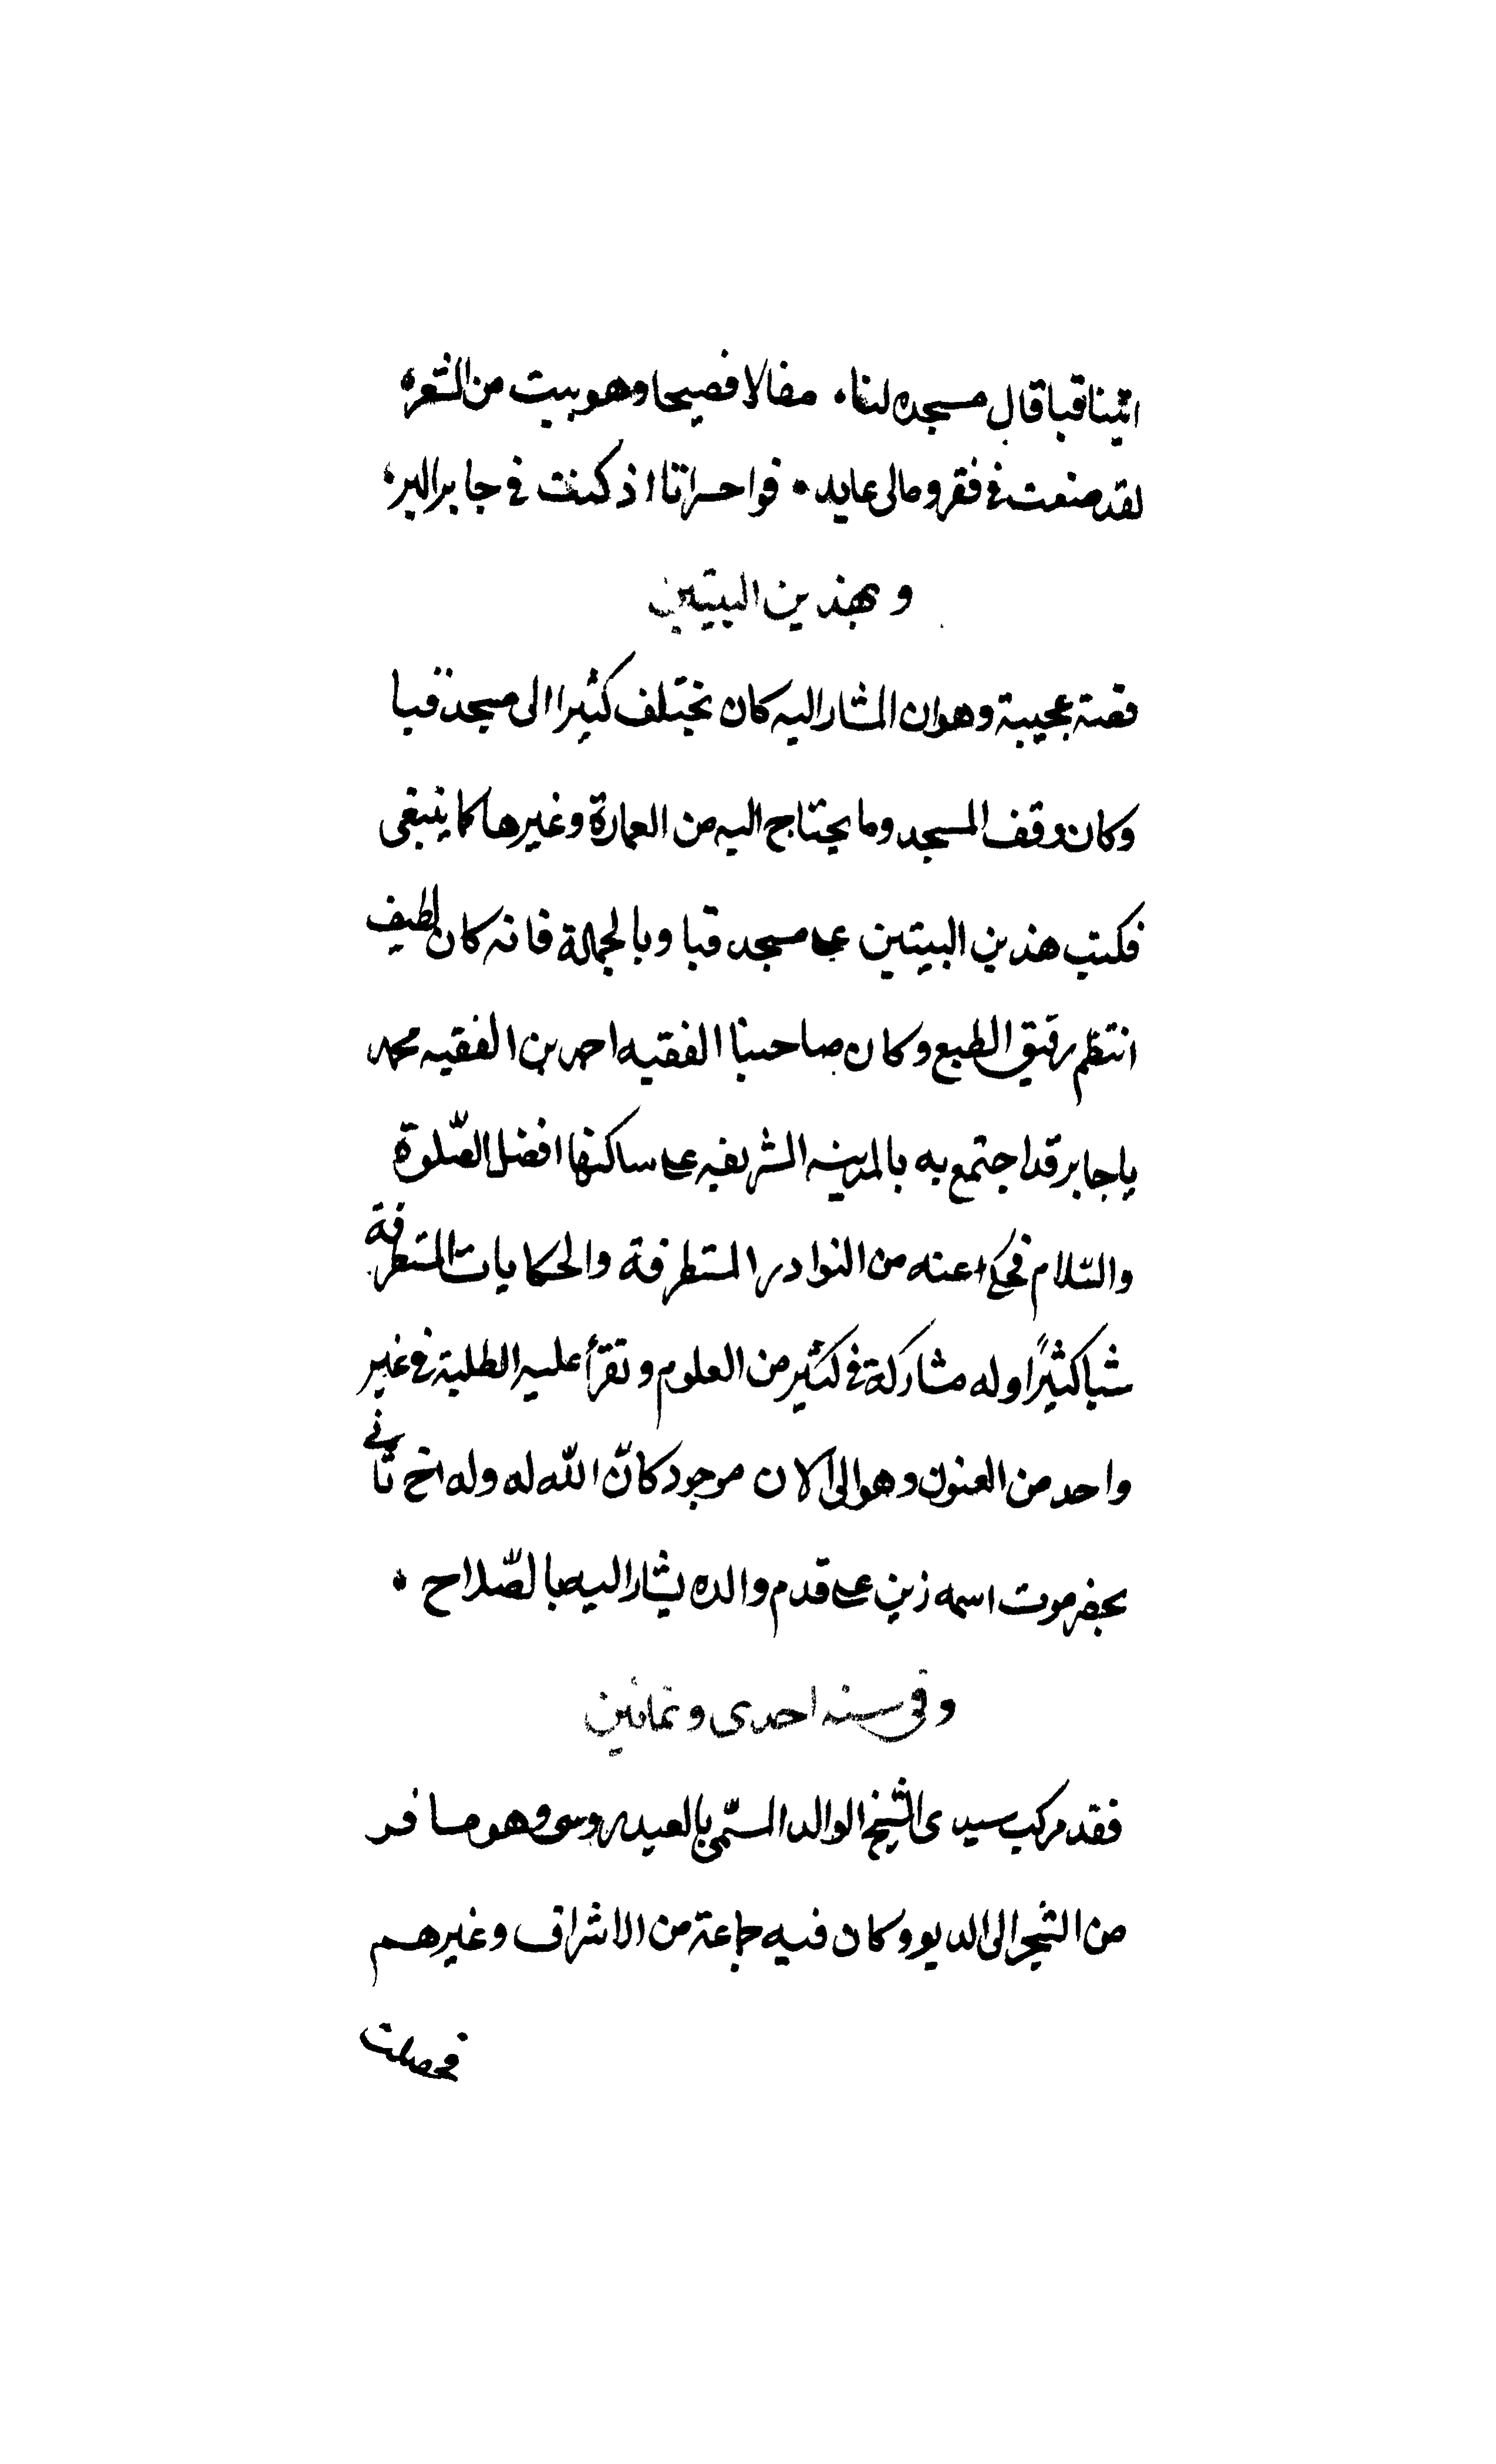 اتينا قبا قال مسجده لنا • مقالا فصيحا وهو بيت من الشعر •
لقد ضعت في فقر ومالي عايد • فواحسراتا اذ كنت في جابر البر •
وبهذين البيتين
قصة عجيبة وهو ان المشار اليه كان يختلف كثيرا الى مسجد قبا
وكان وقف المسجد وما يحتاج اليه من العمارة وغيرها كما ينبغى
فكتب هذين البيتين على مسجد قبا وبالجملة فانه كان لطيف
النظم رقيق الطبع وكان صاحبنا الفقيه احمد بن الفقيه محمد
باجابر قد اجتمع به بالمدينه الشريفه على ساكنها افضل الصّلوة
والسّلام فحكى عنه من النوادر المستطرفة والحكايات المستظرفة
شيا كثيرًا وله مشاركة في كثير من العلوم وتقرأ عليه الطلبة في غير
واحد من الفنون وهو الى الآن موجود كان الله له وله اخ ثاني
بحضرموت اسمه زين على قدم والده يشار اليه بالصّلاح •
وفي سنه احدى وثمانين
فقد مركب سيدى الشيخ الوالد المسّمى بالعيدروسى وهو مسافر
من الشحر الى الديو وكان فيه جماعة من الاشراف وغيرهم
فحصلت